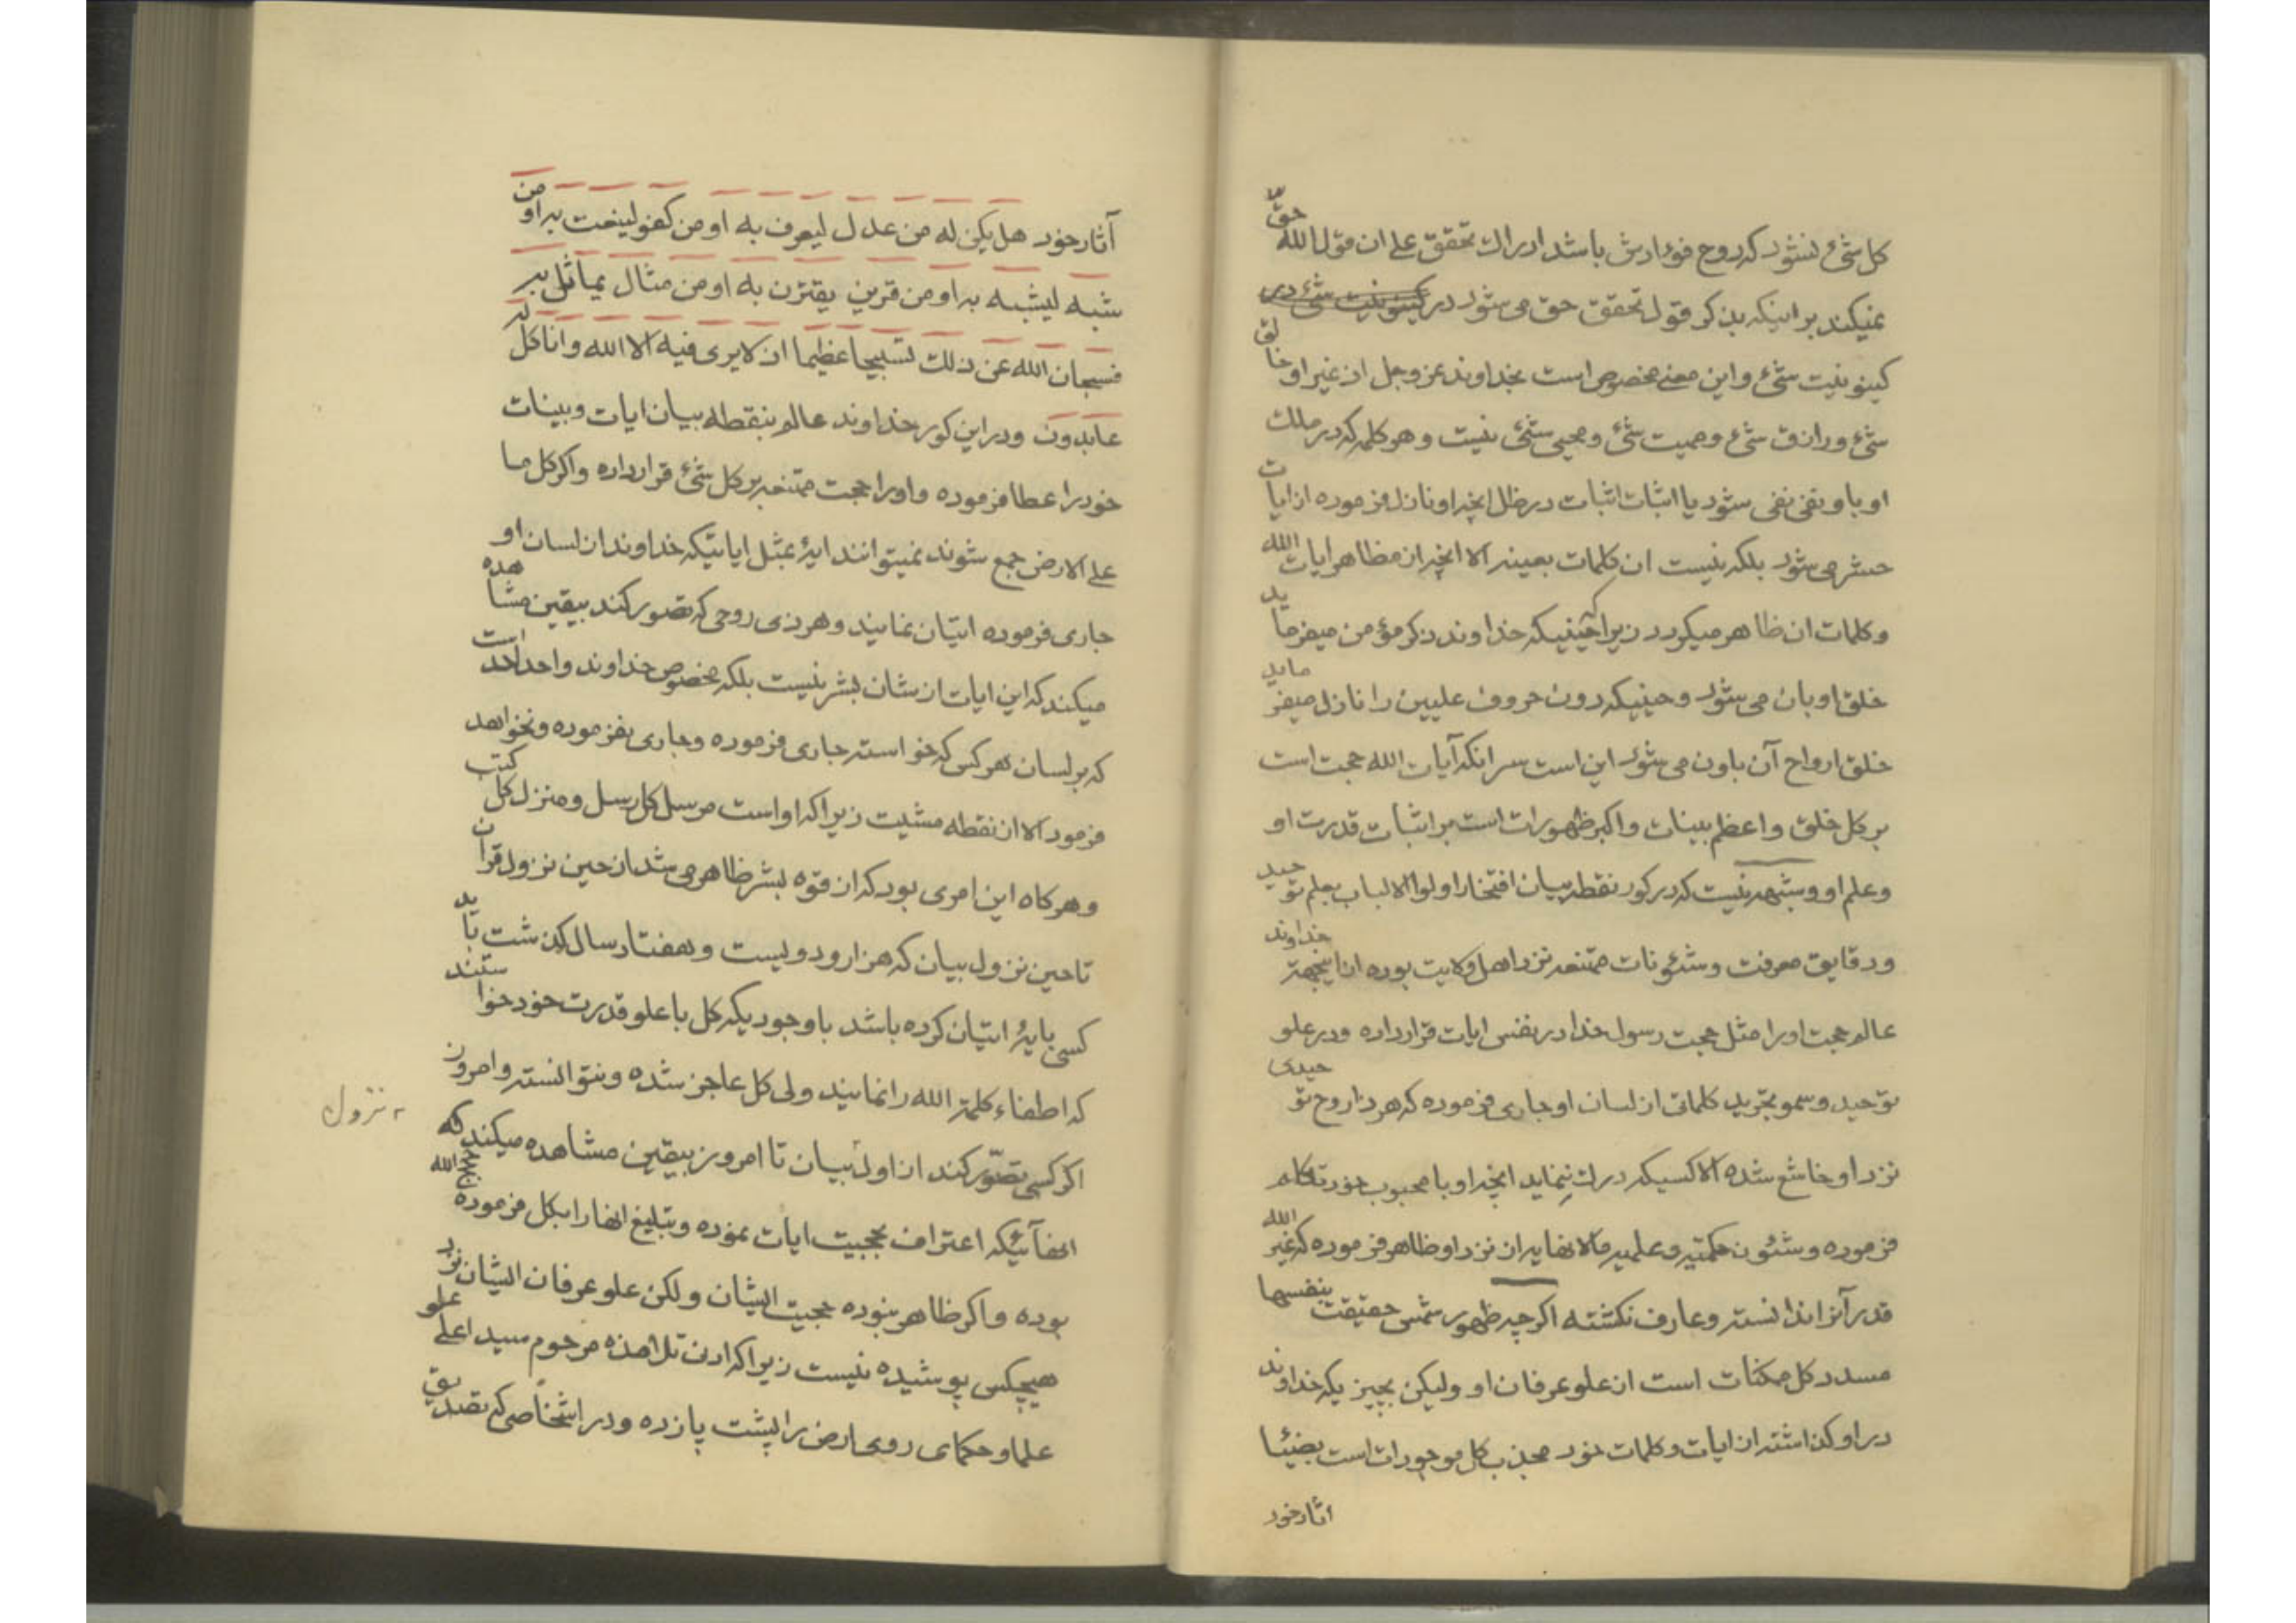 كل شئ نشود كه روح فؤادش باشد ادراك تحقق علي ان قول الله حقّ
نميكند بر اينكه بذكر قول تحقق حق مى شود در كينونيت شئ در
كينونيت شئ و اين معنى مخصوص است بخداوند عز وجل از غير او خالق
شئ و رازق شئ و مميت شئ و محيى شئ نيست و هر كلمه كه در ملك
او باو نفى نفى شود يا اثبات اثبات در ظل انچه او نازل فرموده از ايات
حشر مى شود بلكه نيست ان كلمات بعينه الا انچه از مظاهر ايات الله
و كلمات ان ظاهر ميكردد زيرا حينيكه خداوند ذكر مؤمن ميفرمايد
خلق او بان مى شود و حينيكه دون حروف عليين را نازل ميفرمايد
خلق ارواح آن باون مى شود اين است سر انكه آيات الله حجت است
بر كل خلق و اعظم بينات و اكبر ظهورات است بر اثبات قدرت او
و علم او و شبهه نيست كه در كور نقطه بيان افتخار اولوا الالباب بعلم توحيد
و دقايق معرفت و شئونات ممتنعه نزد اهل ولايت بوده از اينجهة خداوند
عالم حجت او را مثل حجت رسول خدا در نفس ايات قرار داده و در علو
توحيد و سمو تجريد كلماتى از لسان او جارى فرموده كه هر ذا روح توحيدى
نزد او خاشع شده الا كسيكه درك ننمايد انچه او با محبوب خود تكلم
فرموده و شئون حكمتيه و علميه مالانهايه از نزد او ظاهر فرموده كه غير الله
قدر آنرا ندانسته و عارف نكشته اكر چه ظهور شمس حقيقت بنفسها
مسدد كل ممكنات است از علو عرفان او وليكن بچيزيكه خداوند
در او كذاشته از ايات و كلمات خود مجذب كل موجودات است بضيئا
اثار خود
آثار خود هل يكن له من عدل ليعرف به او من كفو لينعت به او من
شبه ليشبه به او من قرين يقترن به او من مثال يماثل به
فسبحان الله عن ذلك تسبيحا عظيما ان لا يرى فيه الا الله وانا كل له
عابدون و در اين كور خداوند عالم بنقطه بيان ايات و بينات
خود را عطا فرموده و او را حجت ممتنعه بر كل شئ قرار داده و اكر كل ما
على الارض جمع شوند نميتوانند ايهٔ بمثل اياتيكه خداوند از لسان او
جارى فرموده اتيان نمايند و هر ذى روحى كه تصور كند بيقين مشاهده
ميكند كه اين ايات از شان بشر نيست بلكه مخصوص خداوند واحد احد است
كه بر لسان هر كس كه خواسته جارى فرموده و جارى نفرموده و نخواهد
فرمود الا از نقطه مشيت زيرا كه او است مرسل كل رسل و منزل كل كتب
و هر كاه اين امرى بود كه از قوه بشر ظاهر مى شد از حين نزول قران
تا حين نزول بيان كه هزار و دويست و هفتاد سال كذشت بايد
كسى بايهٔ اتيان كرده باشد با وجوديكه كل با علو قدرت خود خواستند
كه اطفاء كلمة الله را نمايند ولى كل عاجز شده و نتوانسته و امروز
اكر كسى تصوّر كند از اول بيان تا امروز بيقين مشاهده ميكند كه
نزول
انهآئيكه اعتراف بحجيت ايات نموده و تبليغ انها را بكل فرموده حجج الله
بوده و اكر ظاهر بنوده حجيت ايشان و لكن علو عرفان ايشان نزد
هيچكس پوشيده نيست زيرا كه ادنى تلامذه مرحوم سيد اعلى علو
علما و حكماى روى ارض را پشت پا زده و در اشخاصى كه تصديق